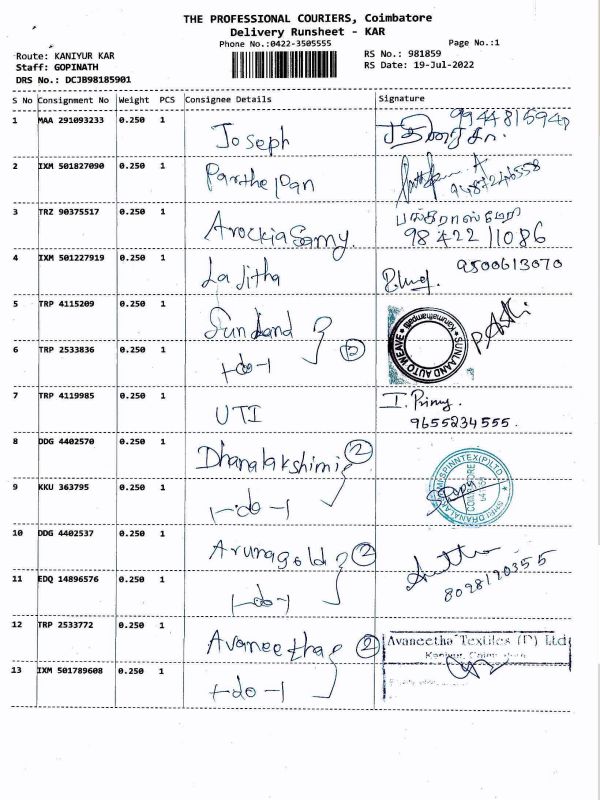 THE PROFESSIONAL COURIERS, Coimbatore
Delivery Runsheet - KAR
Phone No.:0422-3505555
Page No.:1
Route: KANIYUR KAR
Staff: GOPINATH
DRS No.: DCJB98185901
RS No.: 981859
RS Date: 19-Jul-2022
S No Consignment No Weight PCS Consignee Details Signature
1 MAA 291093233 0.250 1 Joseph 9944815940
2 IXM 501827090 0.250 1 Parthepan
3 TRZ 90375517 0.250 1 Arockiasamy
98422 11086
4 IXM 501227919 0.250 1 Lalitha 9500613070
5 TRP 4115209 0.250 1 Sundand
SUNLAAND AUTO WEAVE
Karumathampatti
6 TRP 2533836 0.250 1 -do-
7 TRP 4119985 0.250 1 UTI I. Primy.
9655234555.
8 DDG 4402570 0.250 1 Dhanalakshimi 2
COIMBATORE
9 KKU 363795 0.250 1 -do-
10 DDG 4402537 0.250 1 Arunagold 2
8098120355
11 EDQ 14896576 0.250 1 -do-
12 TRP 2533772 0.250 1 Avaneetha 2 Avaneetha Textiles (P) Ltd
13 IXM 501789608 0.250 1 -do-